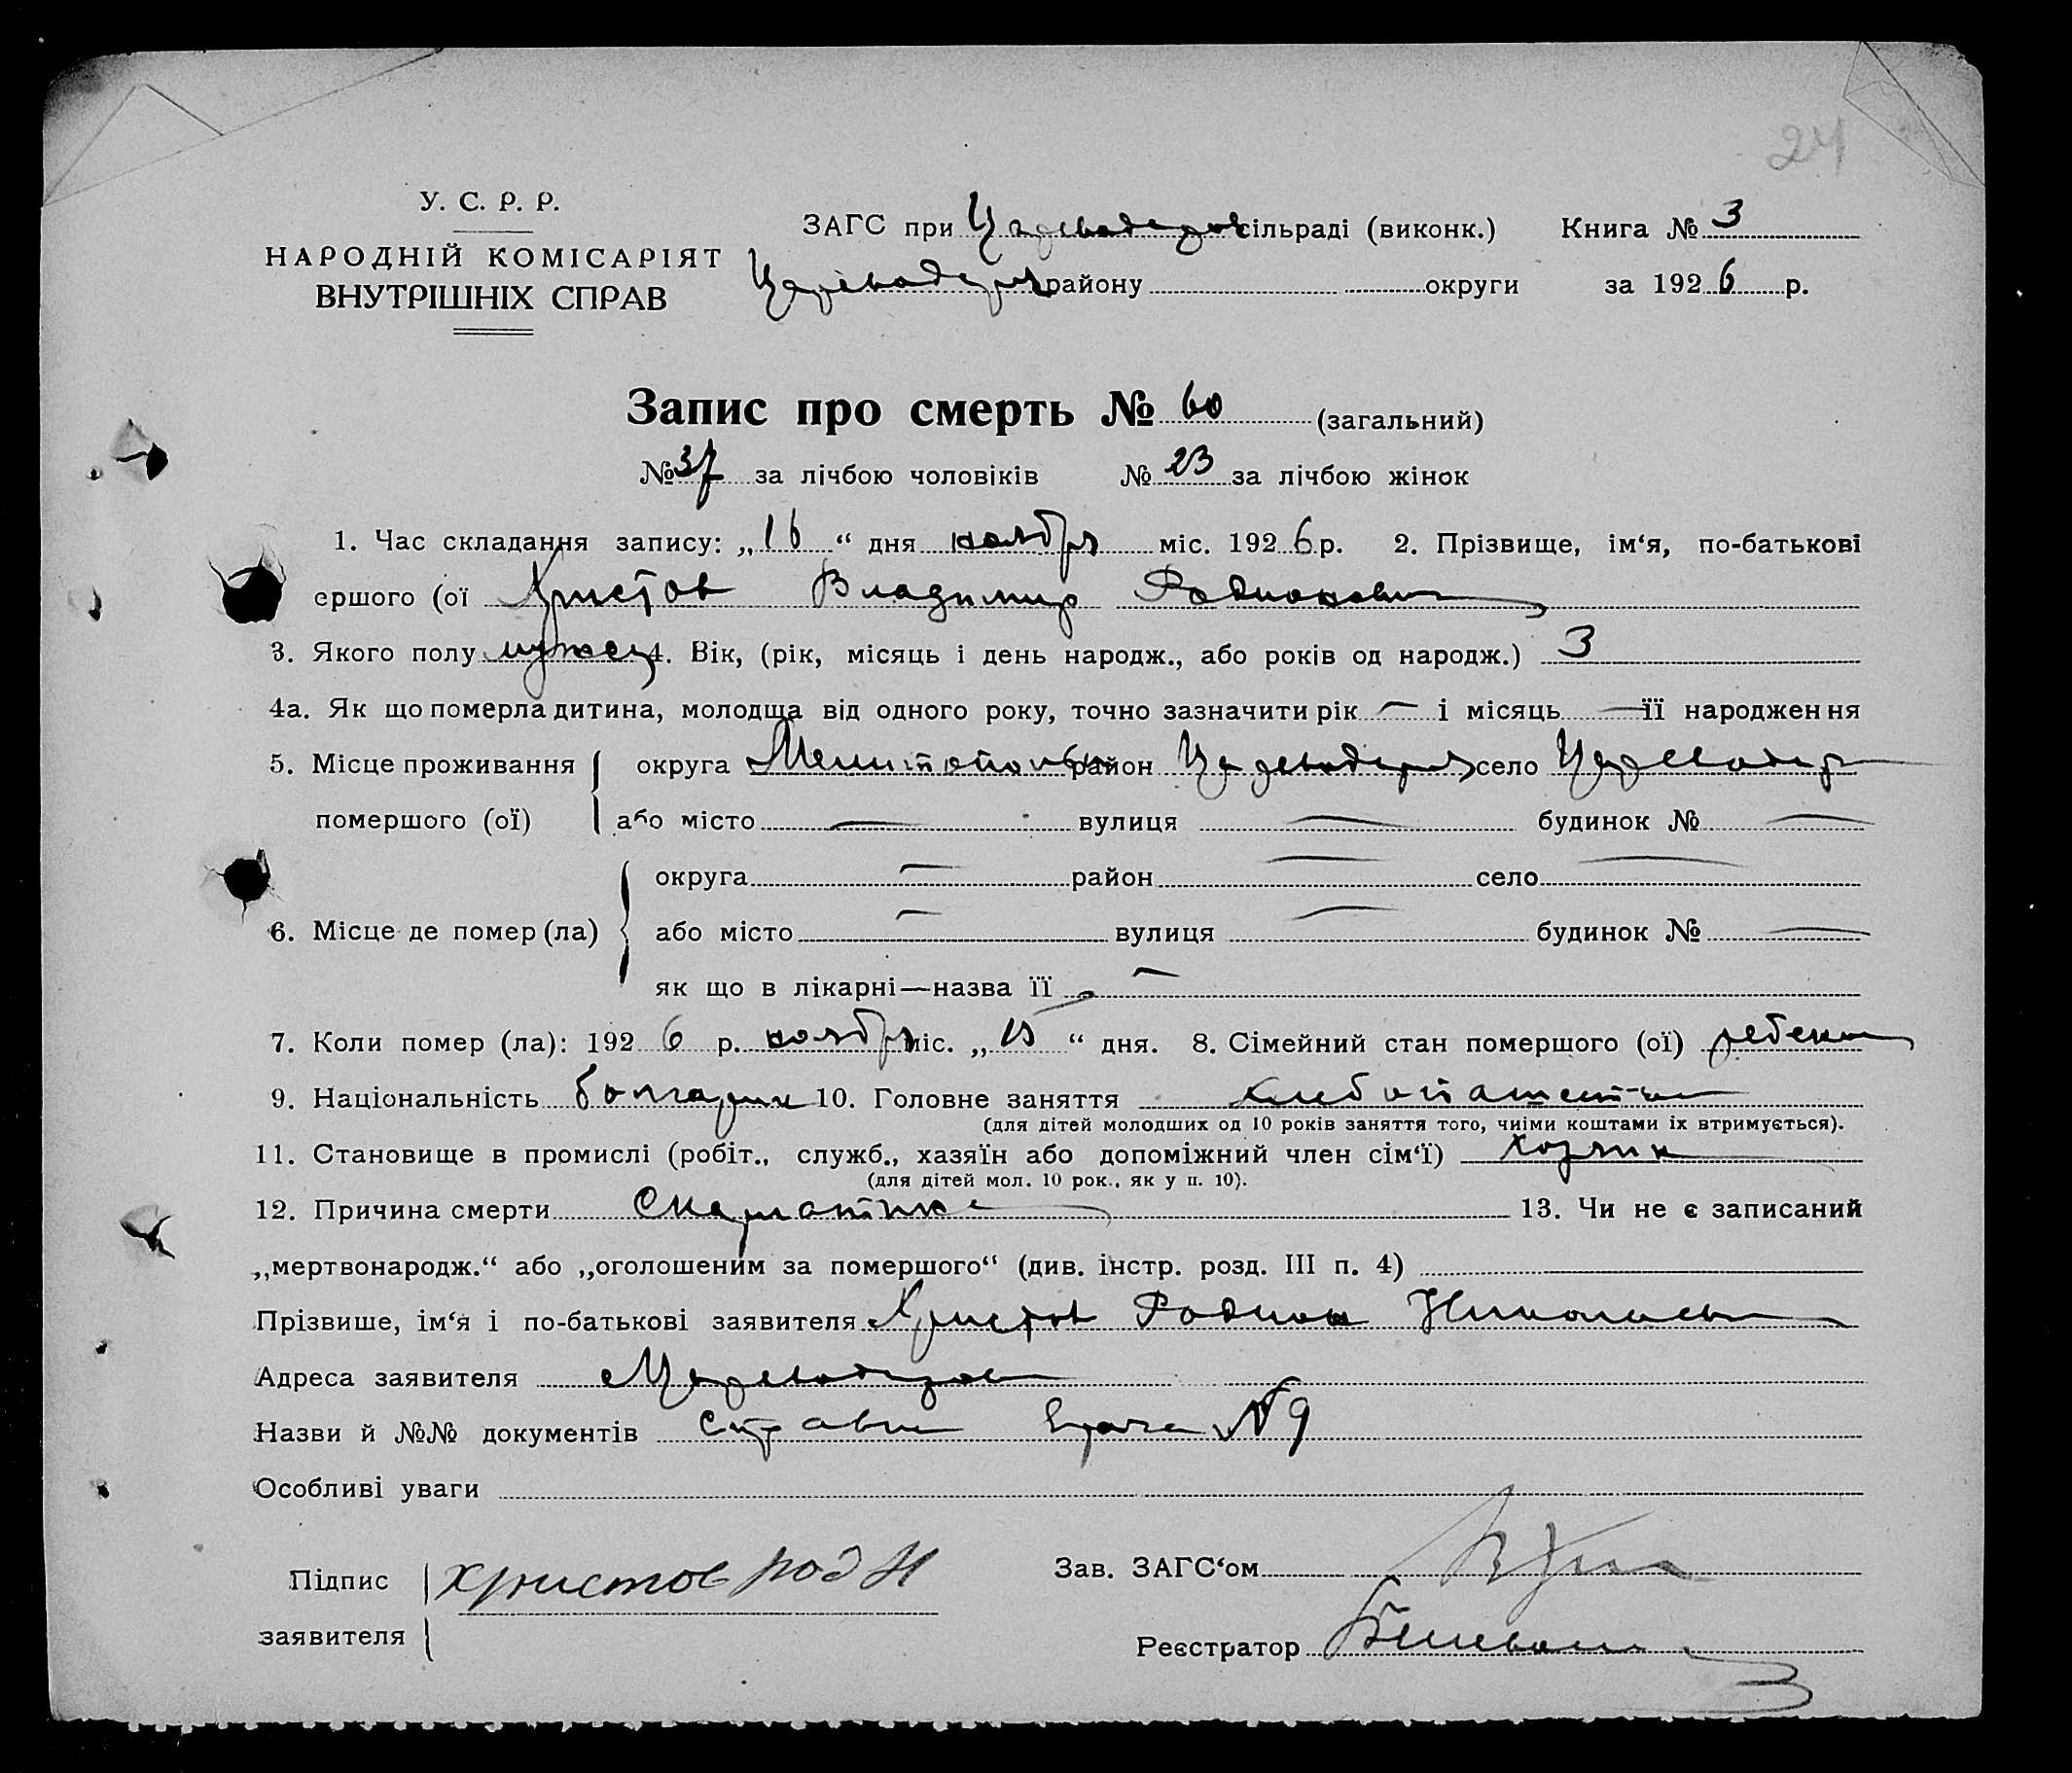 24
У. С. Р. Р.
НАРОДНІЙ КОМІСАРІЯТ
ВНУТРІШНІХ СПРАВ
ЗАГС при Цареводаров сільраді (виконк.) Книга № 3
району округи за 1926 р.
Запис про смерть № 60 (загальний)
№ 37 за лічбою чоловіків № 23 за лічбою жінок
1. Час складання запису: „16“ дня ноября міс. 1926 р. 2. Прізвище, ім‘я, по-батькові
ершого (ої Христов Владимир Родионович
3. Якого полу мужск 4. Вік, (рік, місяць і день народж., або років од народж.) 3
4а. Як що померла дитина, молодща від одного року, точно зазначити рік — і місяць — її народження
5. Місце проживання округа район село
помершого (ої) або місто — вулиця — будинок № —
округа — район — село —
6. Місце де помер (ла) або місто — вулиця — будинок № —
як що в лікарні—назва її —
7. Коли помер (ла): 1926 р. ноября міс. „15“ дня. 8. Сімейний стан помершого (ої) ребенок
9. Національність болгарин 10. Головне заняття хлебопашество
(для дітей молодших од 10 років заняття того, чиїми коштами їх втримується).
11. Становище в промислі (робіт., служб., хазяїн або допоміжний член сім‘ї) хозяин
(для дітей мол. 10 рок., як у п. 10).
12. Причина смерти Скарлатина 13. Чи не є записаний
„мертвонародж.“ або „оголошеним за помершого“ (див. інстр. розд. III п. 4)
Прізвише, ім‘я і по-батькові заявителя Христов Родион Николаев
Адреса заявителя
Назви й №№ документів справка врача №9
Особливі уваги
Підпис христов род Н
заявителя
Зав. ЗАГС‘ом
Реєстратор